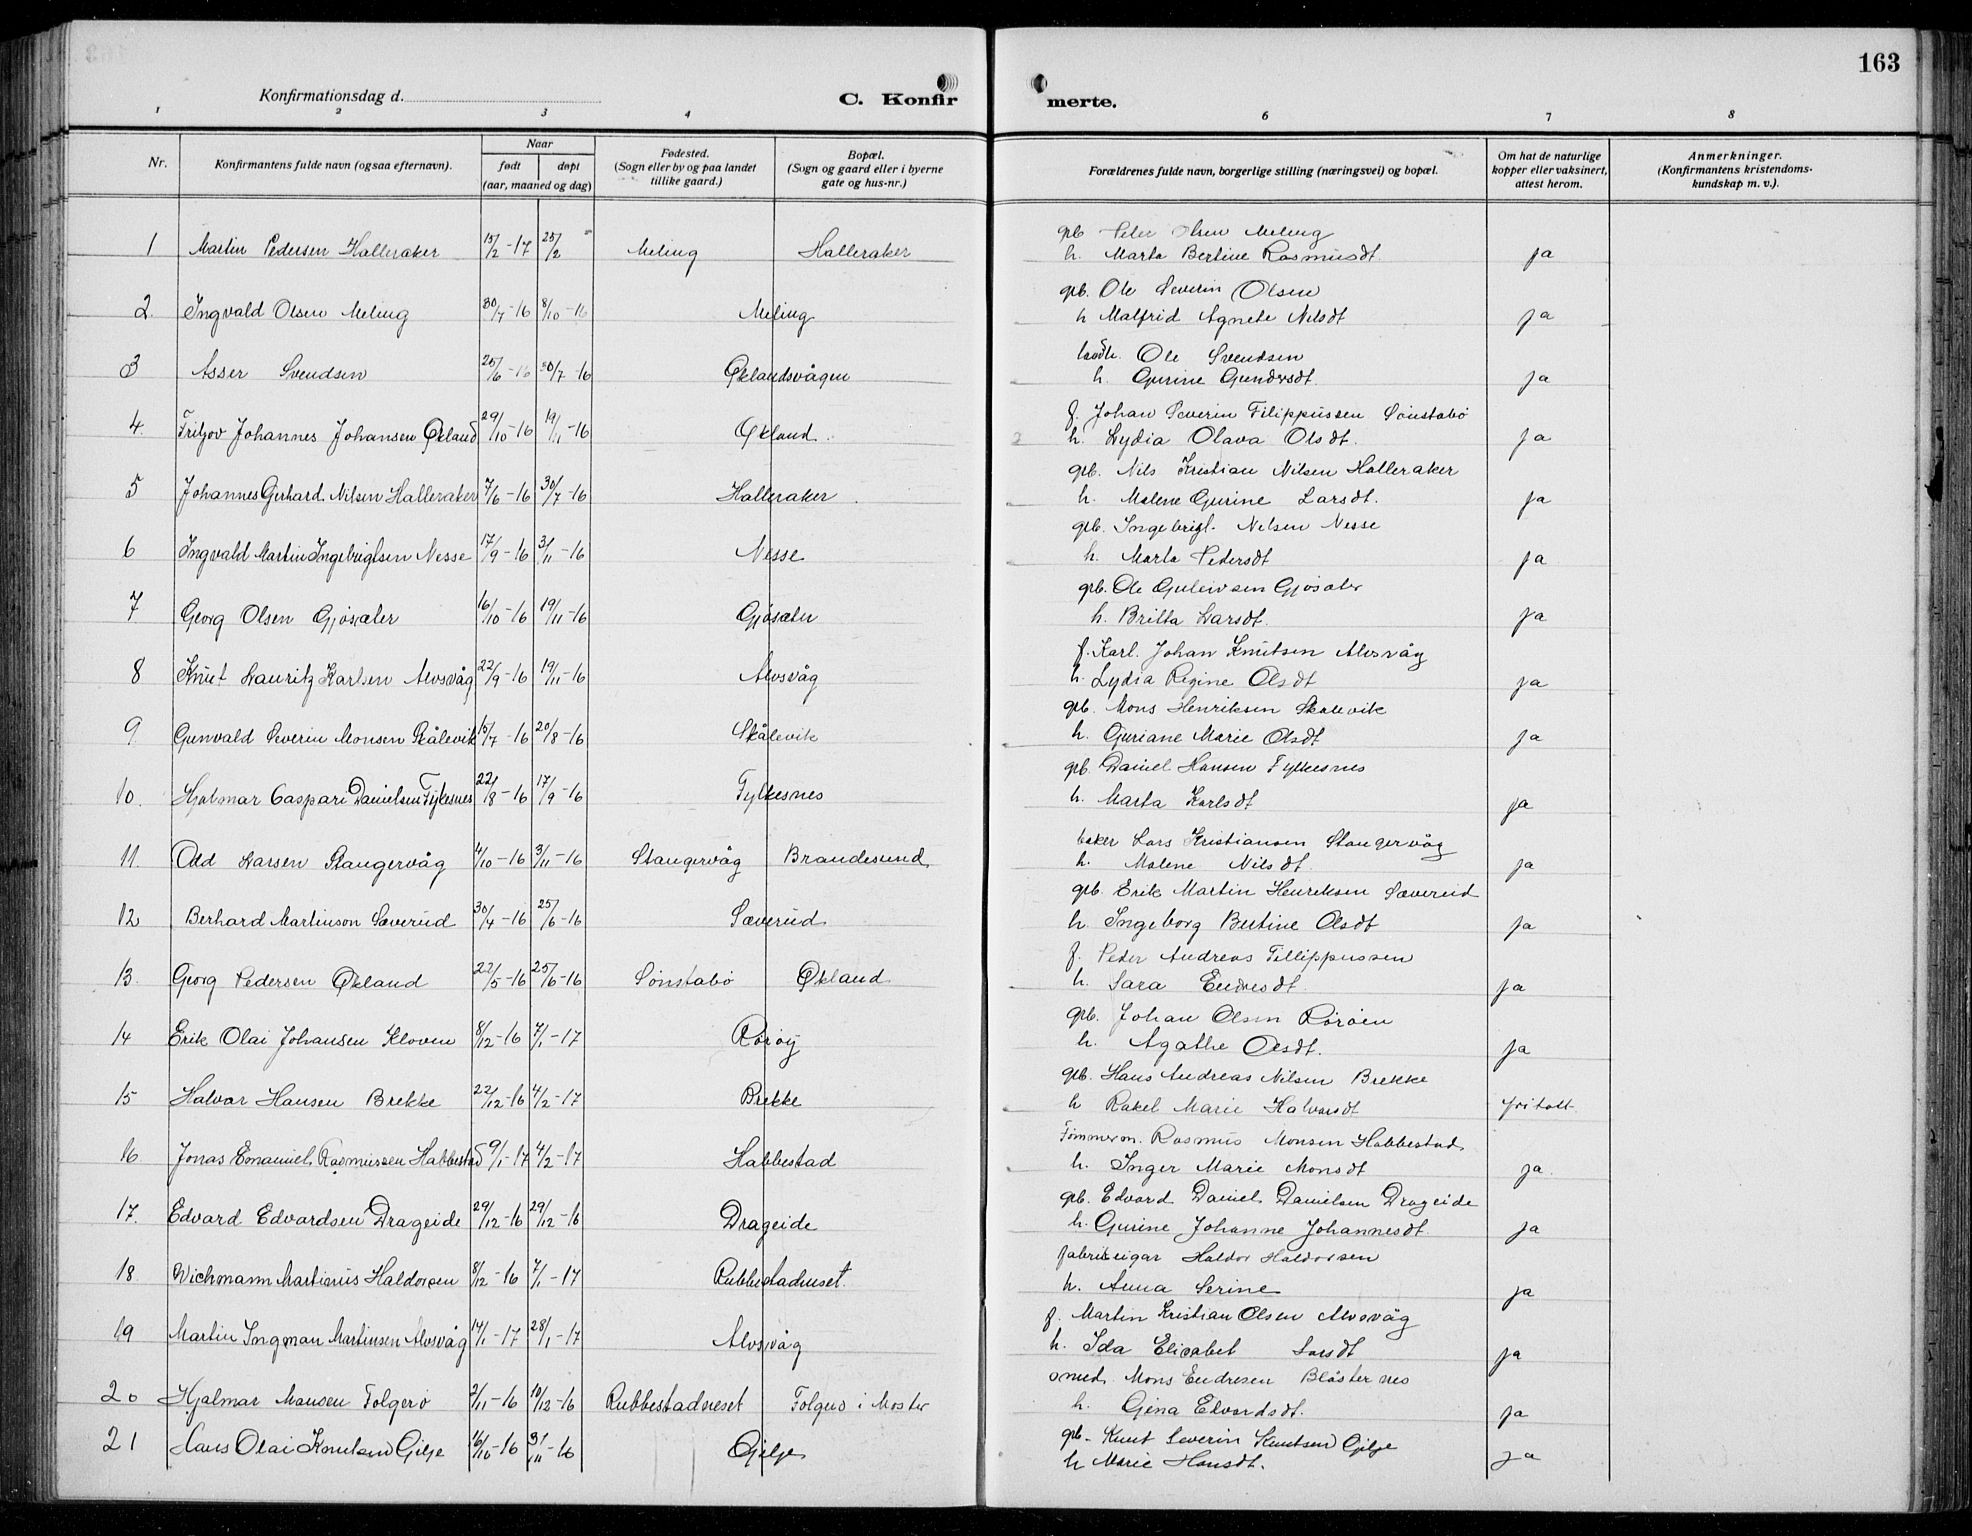 163
Konfirmationsdag d.
C. Konfir merte.
1 2 3 4 6 7 8
Nr. Konfirmantens fulde navn (ogsaa efternavn). Naar født døpt (aar, maaned og dag) Fødested. (Sogn eller by og paa landet tillike gaard.) Bopæl. (Sogn og gaard eller i byerne gate og hus-nr.) Forældrenes fulde navn, borgerlige stilling (næringsvei) og bopæl. Om hat de naturlige kopper eller vaksinert, attest herom. Anmerkninger. (Konfirmantens kristendoms-kundskap m. v.).
gb. Peder Olsen Meling
1 Martin Pedersen Halleraker 15/2-17 25/2 Meling Halleraker h. Marta Bertine Rasmusdt. ja
gb. Ole Severin Olsen
2. Ingvald Olsen Meling 30/7-16 8/10-16 Meling h Malfrid Agnete Nilsdt ja
Ole Svendsen
3 Asser Svendsen 25/6-16 30/7-16 Øklandsvågen h. Gurine Gundersdt. ja
f. Johan Severin Filippussen Sønstabø
4. Fritjov Johannes Johansen Økland 29/10-16 19/11-16 Økland. h. Lydia Olava Olsdt. ja
gb. Nils Kristian Nilsen Halleraker
5 Johannes Gerhard Nilsen Halleraker 7/6-16 30/7-16 Halleraker. h. Malene Gurine Larsdt. ja
gb. Ingebrigt Nilsen Nesse
6 Ingvald Martin Ingebrigtsen Nesse 17/9-16 3/11-16 Nesse h. Marta Pedersdt ja
gb. Ole Guleivsen Gjøsæter
7 Georg Olsen Gjøsæter 16/10-16 19/11-16 Gjøsæter h. Britta Larsdt. ja
f. Karl Johan Knutsen Alvsvåg
8 Knut Lauritz Karlsen Alvsvåg 22/9-16 19/11-16 Alvsvåg h. Lydia Regine Olsdt ja
gb. Mons Henriksen Skålevik
9 Gunvald Severin Monsen Skålevik 15/7-16 20/8-16 Skålevik h. Guriane Marie Olsdt ja
gb. Daniel Hansen Fylkesnes
10. Hjalmar Caspari Danielsen Fylkesnes 22/8-16 17/9-16 Fylkesnes h. Marta Karlsdt ja
baker Lars Kristiansen Stangervåg
11. Odd Larsen Stangervåg 4/10-16 3/11-16 Stangervåg Brandesund h. Malene Nilsdt. ja
gb. Erik Martin Henriksen Sæverud
12 Berhard Martinson Sæverud 30/4-16 25/6-16 Sæverud h. Ingeborg Bertine Olsdt ja
f. Peder Andreas Fillippussen
13. Georg Pedersen Økland 22/5-16 25/6-16 Sønstabø Økland h. Sara Endresdt. ja
gb. Johan Olsen Rørøen
14 Erik Olai Johansen Kloven 8/12-16 7/1-17 Rørøy h. Agathe Olsdt. ja
gb. Hans Andreas Nilsen Brekke
15 Halvar Hansen Brekke 22/12-16 4/2-17 Brekke h Rakel Marie Halvorsdt fritatt
Tømmerm. Rasmus Monsen Habbestad
16. Jonas Emanuel Rasmussen Habbestad 9/1-17 4/2-17 Habbestad h. Inger Marie Monsdt ja.
gb. Edvard Daniel Danielsen Drageide
17. Edvard Edvardsen Drageide 29/12-16 29/12-16 Drageide h. Gurine Johanne Johannesdt. ja
fabrikeigar Haldor Haldorsen
18. Wichmann Martinus Haldorsen 8/12-16 7/1-17 Rubbestadneset. h. Anna Serine ja
f. Martin Kristian Olsen Alvsvåg
19 Martin Ingman Martinsen Alvsvåg 14/1-17 28/1-17 Alvsvåg h. Ida Elisabet Larsdt ja
smed. Mons Endresen Blåsternes
20 Hjalmar Monsen Folgerø 2/11-16 10/12-16 Rubbestadneset Folgerø i Moster h. Gina Edvardsdt. ja
gb. Knut Severin Knutsen Gilje
21 Hans Olai Knutsen Gilje 16/10-16 3/11-16 Gilje h Marie Hansdt. ja